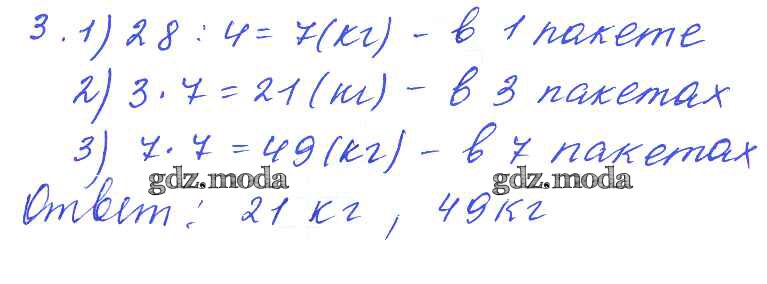 3. 1) 28 : 4 = 7 (кг) - в 1 пакете
2) 3 · 7 = 21 (кг) - в 3 пакетах
3) 7 · 7 = 49 (кг) - в 7 пакетах
gdz.moda gdz.moda
Ответ: 21 кг, 49 кг